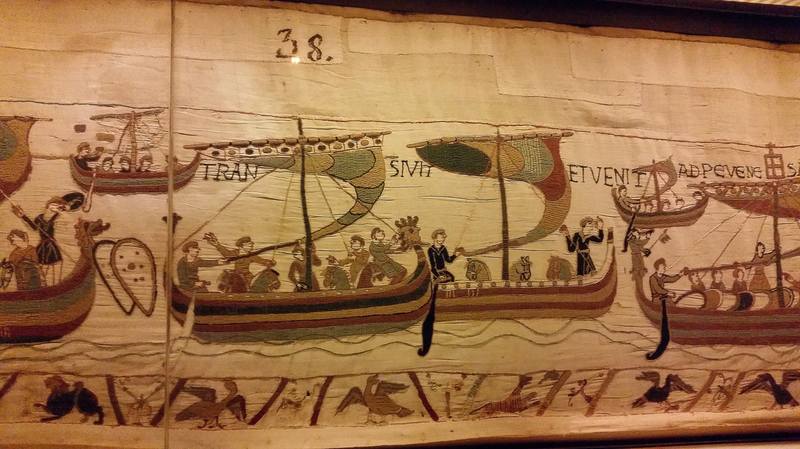 38.
TRAN SIVIT ET VENIT AD PEVENE S